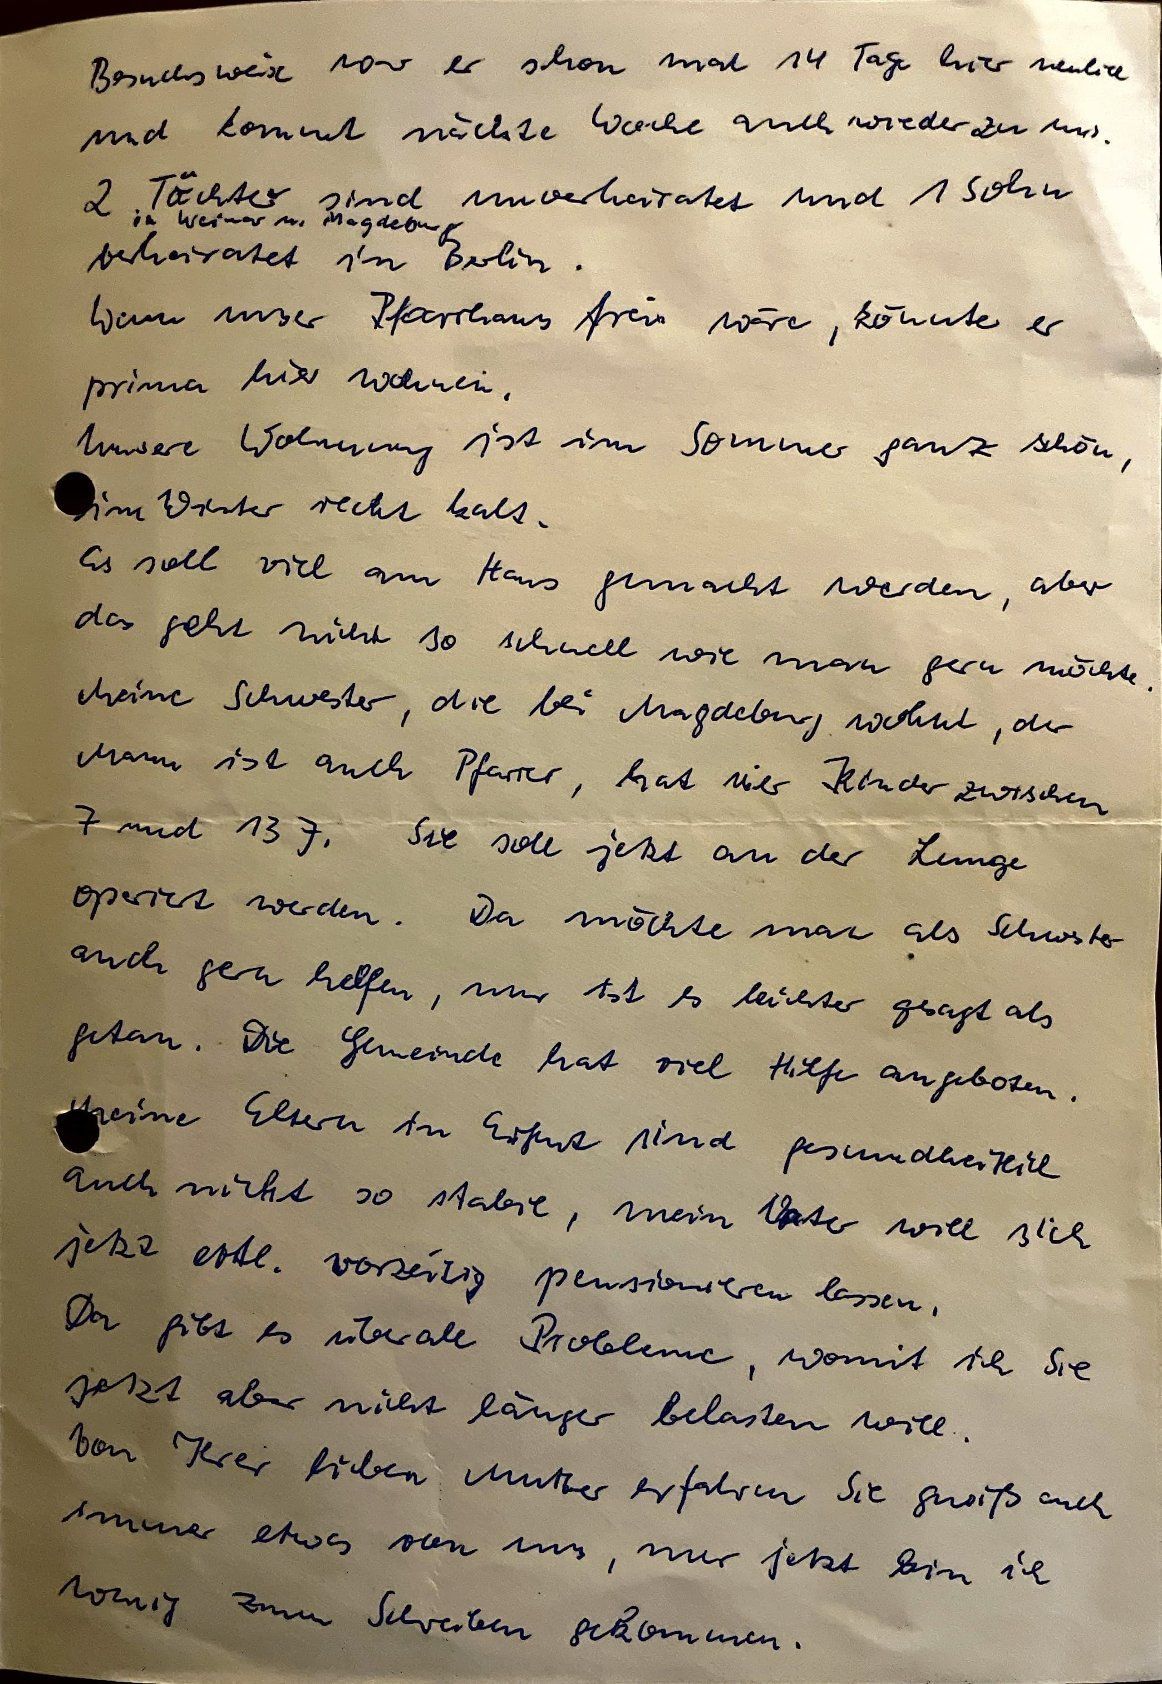 Besuchsweise war er schon mal 14 Tage hier neulich
und kommt nächste Woche auch wieder zu uns.
2 Töchter sind unverheiratet und 1 Sohn
in Weimar u. Magdeburg
verheiratet in Berlin.
Wenn unser Pfarrhaus frei wäre, könnte er
prima hier wohnen.
Unsere Wohnung ist im Sommer ganz schön,
im Winter recht kalt.
Es soll viel am Haus gemacht werden, aber
das geht nicht so schnell wie man gern möchte.
Meine Schwester, die bei Magdeburg wohnt, der
Mann ist auch Pfarrer, hat vier Kinder zwischen
7 und 13 J. Sie soll jetzt an der Lunge
operiert werden. Da möchte man als Schwester
auch gern helfen, nur ist es leichter gesagt als
getan. Die Gemeinde hat viel Hilfe angeboten.
Meine Eltern in Erfurt sind gesundheitlich
auch nicht so stabil, mein Vater will sich
jetzt evtl. vorzeitig pensionieren lassen.
Da gibt es überall Probleme, womit ich Sie
jetzt aber nicht länger belasten will.
Von Ihrer lieben Mutter erfahren Sie gewiß auch
immer etwas von uns, nur jetzt bin ich
wenig zum Schreiben gekommen.